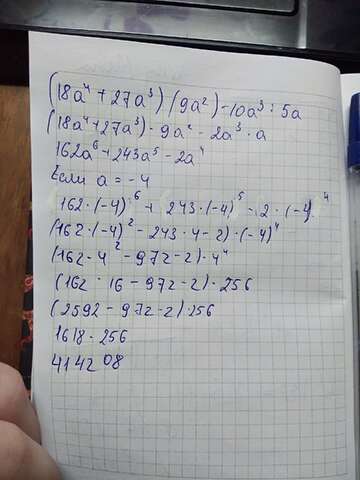 (18a⁴ + 27a³) (9a²) - 10a³ : 5a
(18a⁴ + 27a³) · 9a² - 2a³ · a
162a⁶ + 243a⁵ - 2a⁴
Если a = -4
162 · (-4)⁶ + 243 · (-4)⁵ - 2 · (-4)⁴
(162 · (-4)² - 243 · 4 - 2) · (-4)⁴
(162 · 4² - 972 - 2) · 4⁴
(162 · 16 - 972 - 2) · 256
(2592 - 972 - 2) · 256
1618 · 256
414208